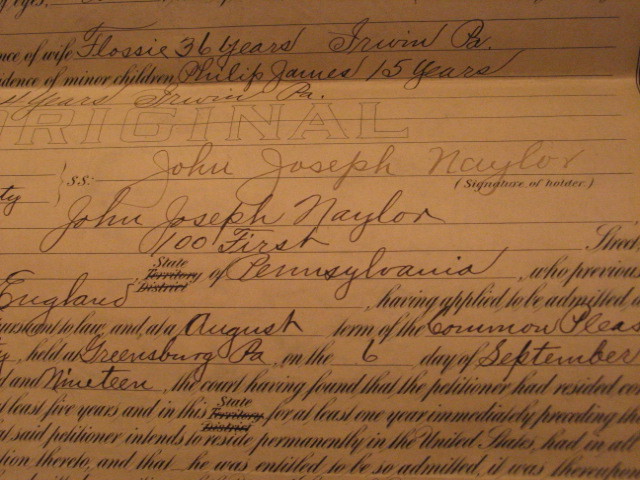 eyes.
nce of wife Flossie 36 Years Irwin Pa.
idence of minor children Philip James 15 Years
Years Irwin Pa.
ORIGINAL
ss: John Joseph Naylor
(Signature of holder.)
ty
John Joseph Naylor
100 First Street
State
Territory of Pennsylvania, who previous
District
England, having applied to be admitted
pursuant to law, and, at a August term of the Common Pleas
held at Greensburg Pa, on the 6 day of September
d and Nineteen, the court having found that the petitioner had resided co
t least five years and in this State
Territory for at least one year immediately preceding the
District
t said petitioner intends to reside permanently in the United States, had in all
tion thereto, and that he was entitled to be so admitted, it was thereupon